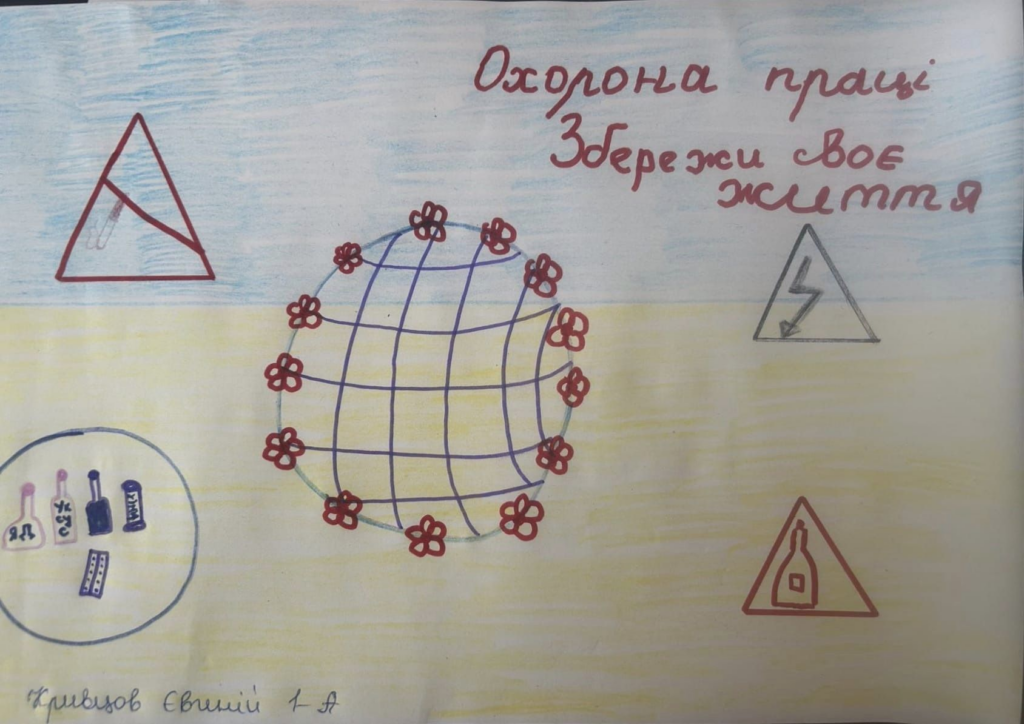 Охорона праці
Збережи своє
життя
Кривцов Євгеній 1-А